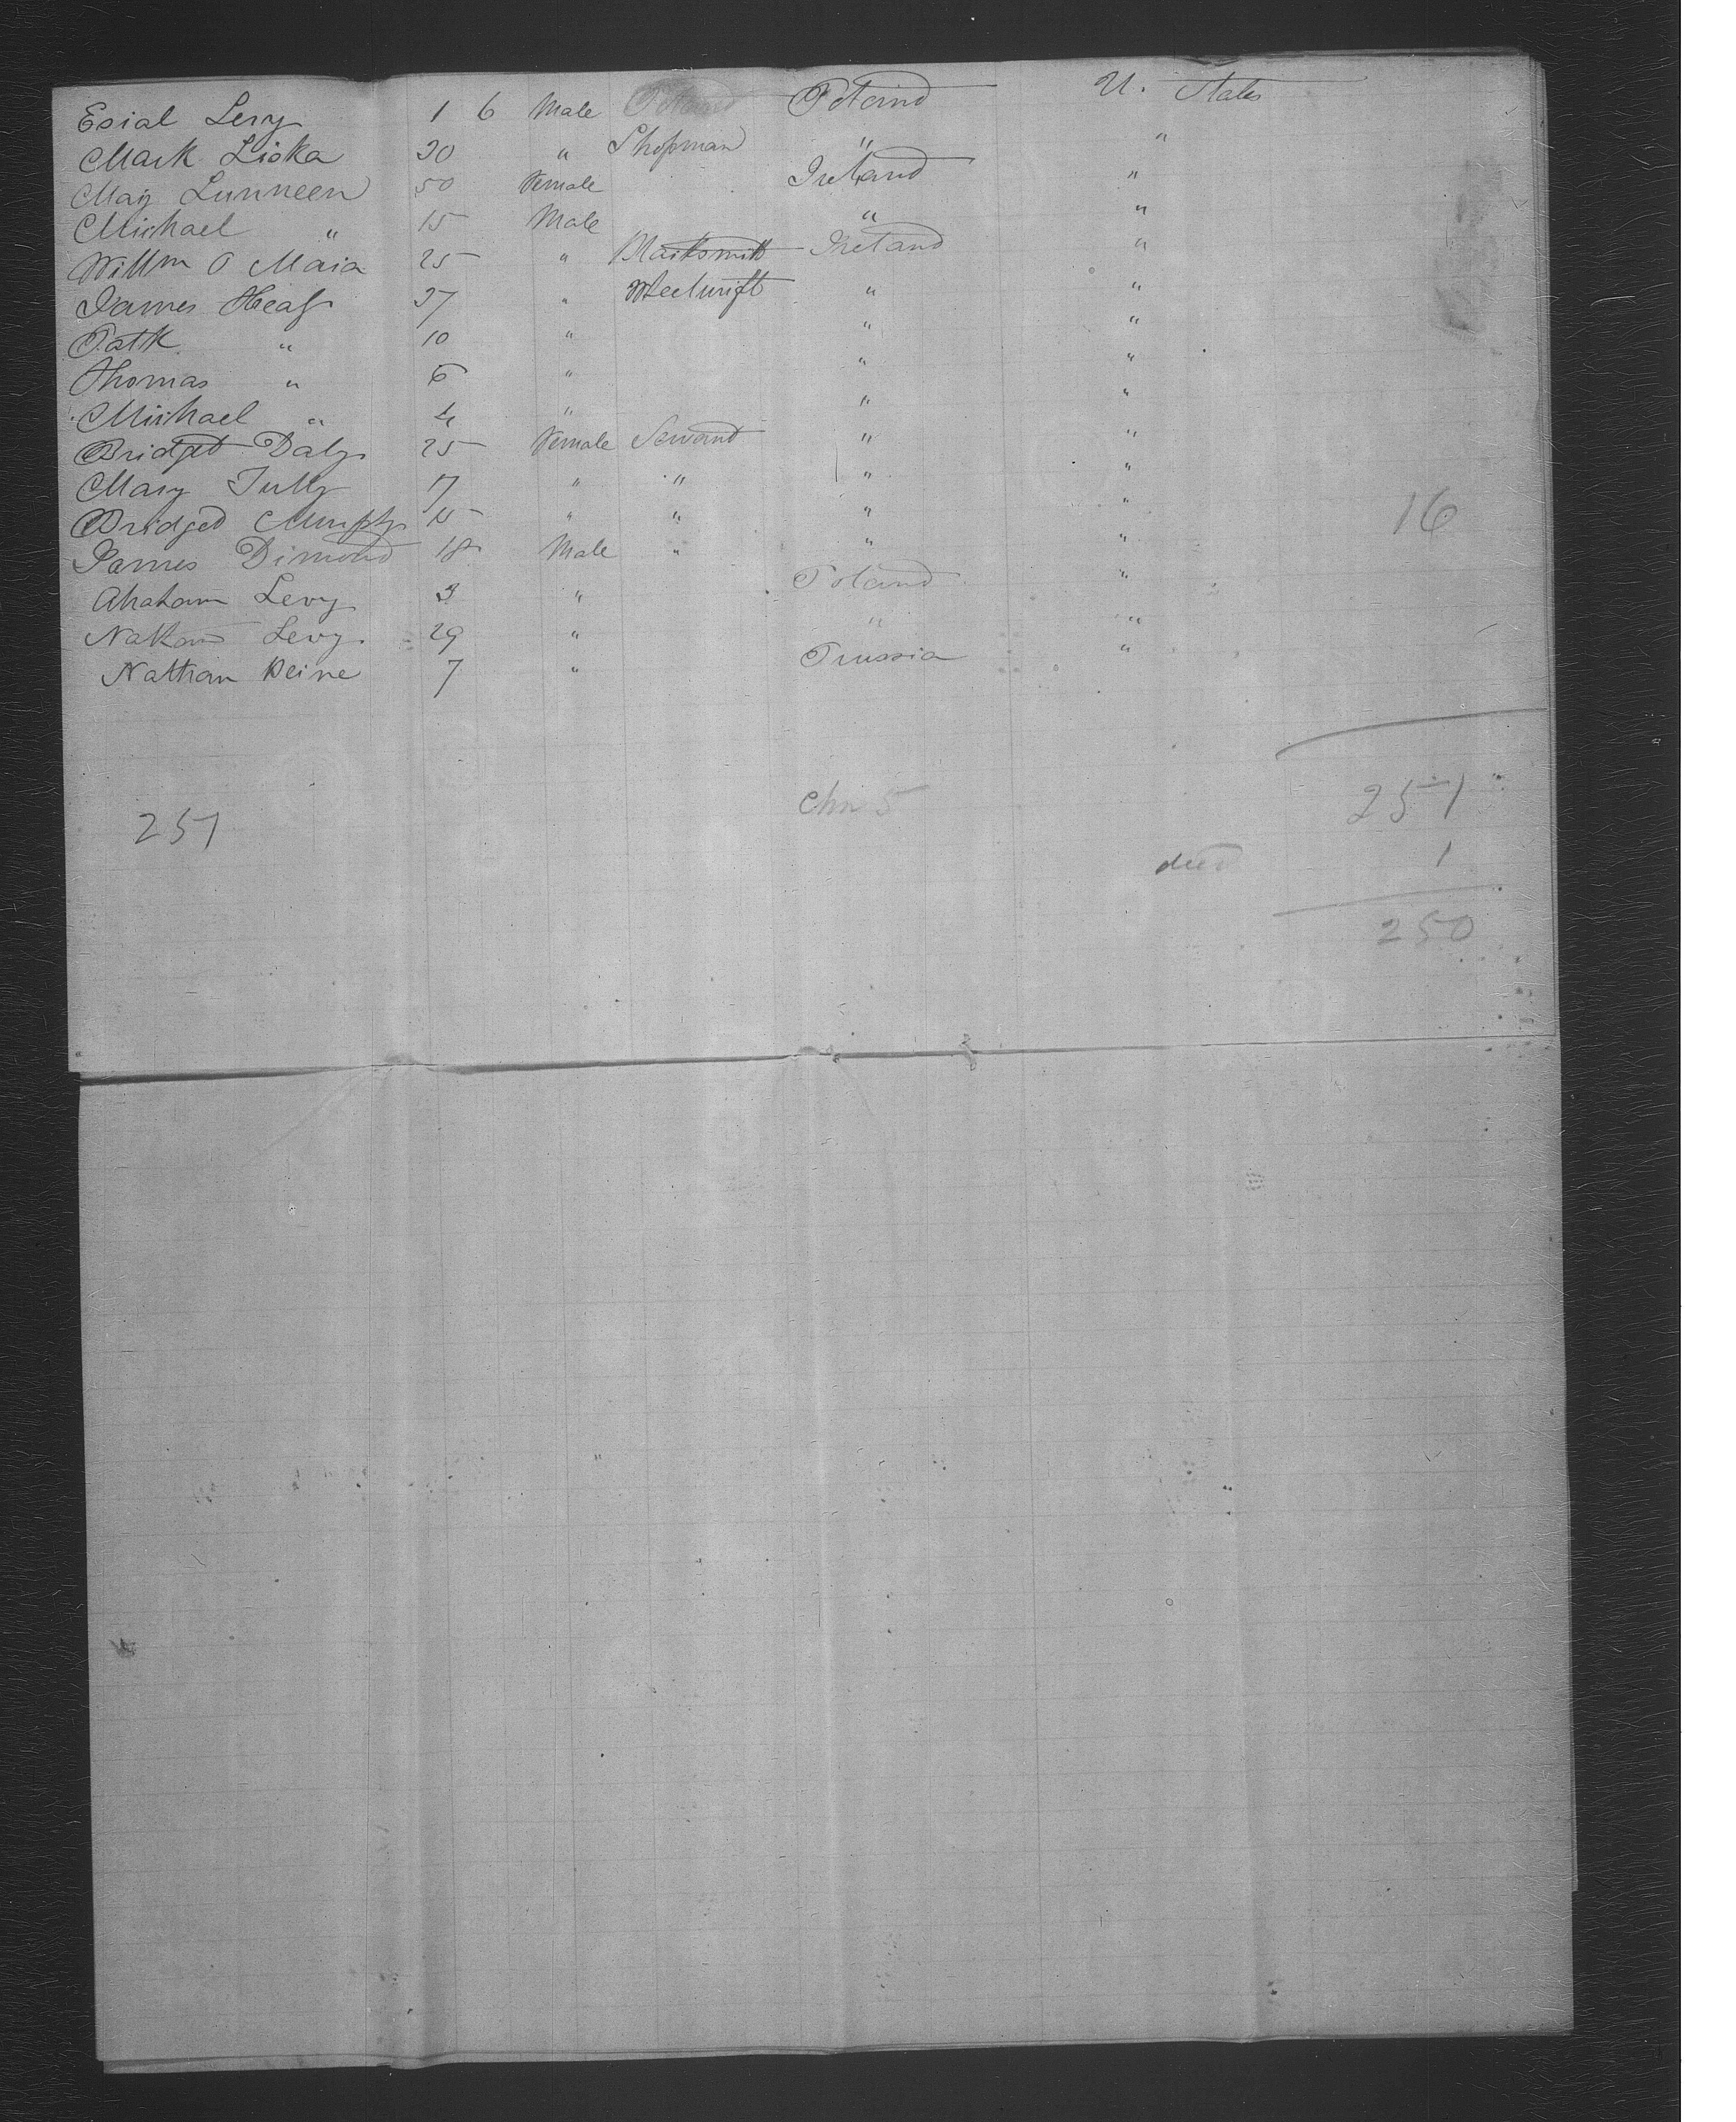 Esial Levy 1 6 Male Poland Poland U. States
Mark Liska 30 " Shopman " "
May Lunneen 50 Female Ireland "
Michael " 15 Male " "
Willm O Maia 25 " Blacksmith Ireland "
James Heaf 37 " " "
Patk " 10 " " "
Thomas " 6 " " "
Michael " 4 " " "
Bridget Daly 25 Female Servant " "
Mary Tully 17 " " " "
Bridged Murphy 15 " " " "
16
James Dimond 18 Male " " "
Abaham Levy 3 " Poland "
Nathan Levy 29 " " "
Nathan Deine 7 " Prussia "
257 Chn 5 257
died 1
250